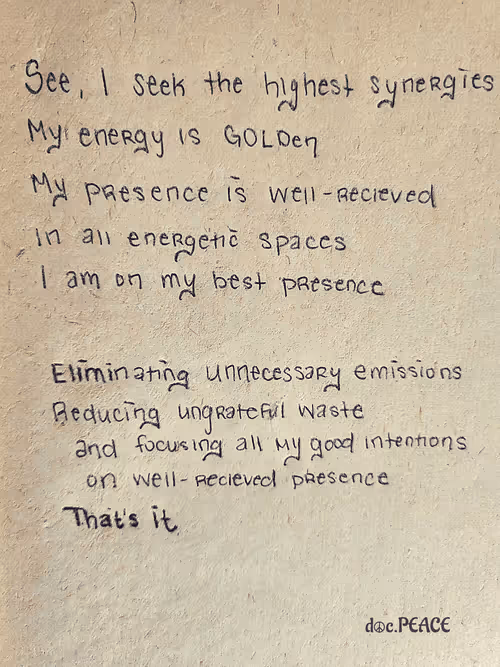 See, I seek the highest synergies
My energy is GOLDen
My presence is well-recieved
in all energetic spaces
I am on my best presence
Eliminating unnecessary emissions
Reducing ungrateful waste
and focusing all my good intentions
on well-recieved presence
That's it
doc.PEACE